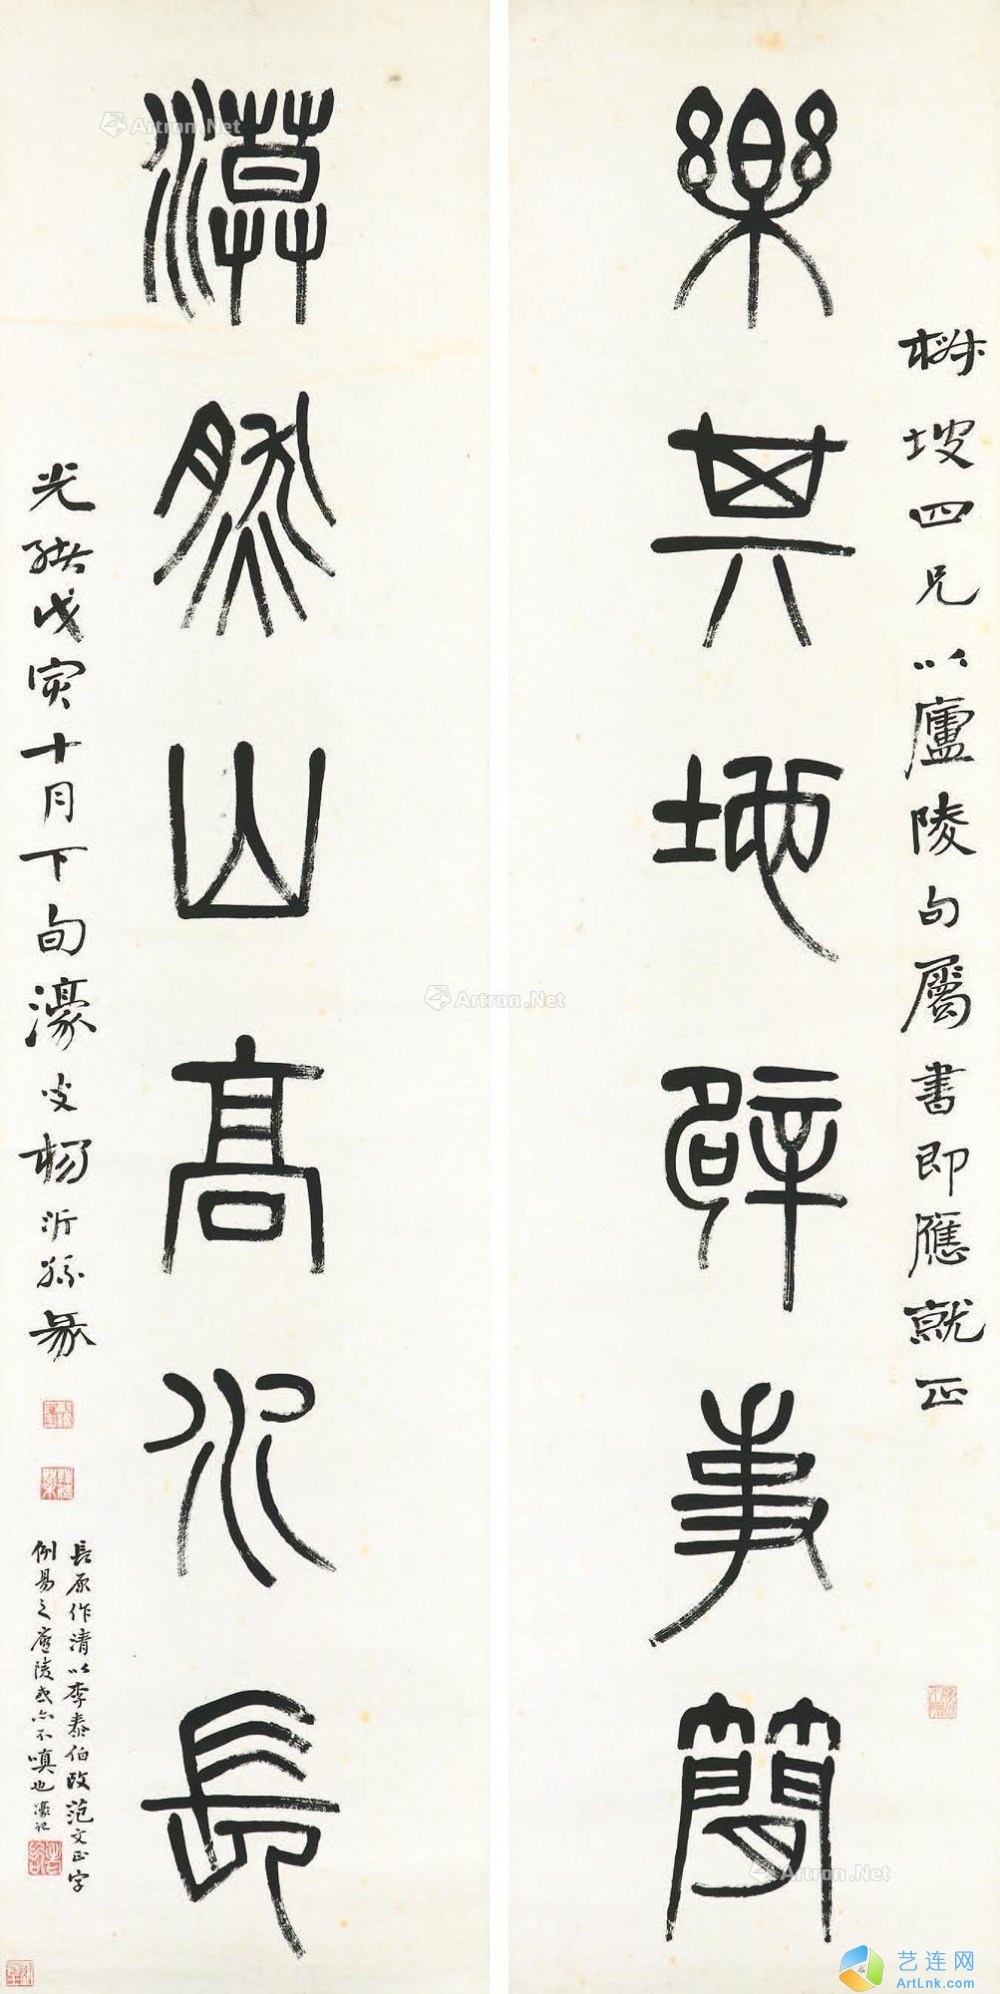 椒坡四兄以廬陵句屬書即應就正
樂其地辟事簡
漠然山高水長
光緒戊寅十月下旬濠叟楊沂孫篆
長原作清以李泰伯改范文正字
例易之廬陵或亦不嗔也濠記
Artron.Net
Artron.Net
Artron.Net
艺连网
ArtLnk.com